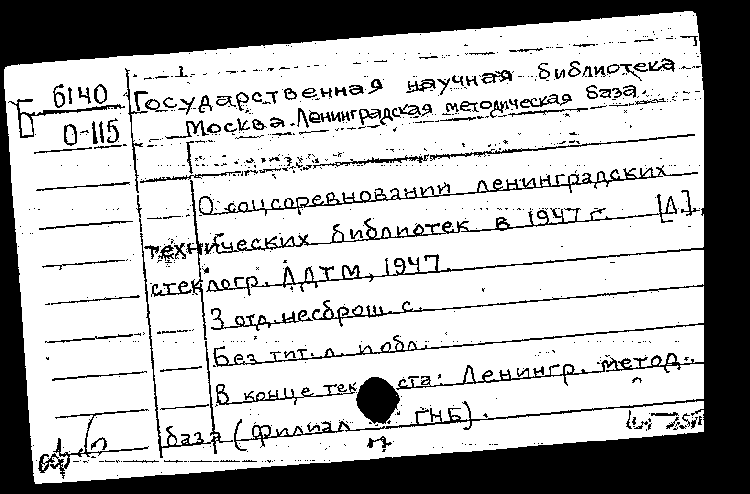 Б 6140
О-115
Государственная научная библиотека
Москва. Ленинградская методическая база.
О соцсоревновании ленинградских
технических библиотек в 1947 г. [Л.],
стеклогр. ЛДТМ, 1947.
3 отд. несброш. с.
Без тит. л. и обл.
В конце текста: Ленингр. метод.
база (филиал ГНБ).